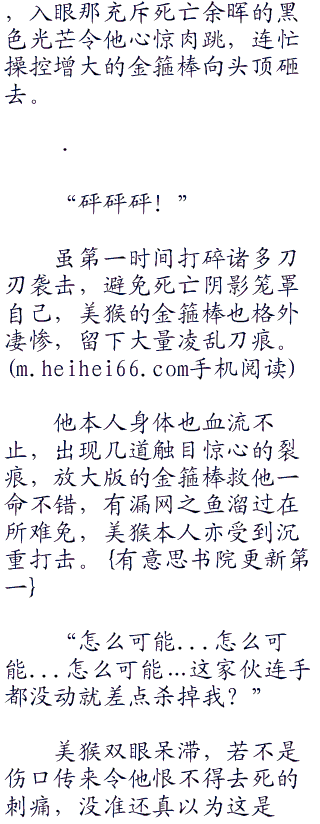 ，入眼那充斥死亡余晖的黑
色光芒令他心惊肉跳，连忙
操控增大的金箍棒向头顶砸
去。
．
“砰砰砰！”
虽第一时间打碎诸多刀
刃袭击，避免死亡阴影笼罩
自己，美猴的金箍棒也格外
凄惨，留下大量凌乱刀痕。
(m.heihei66.com手机阅读)
他本人身体也血流不
止，出现几道触目惊心的裂
痕，放大版的金箍棒救他一
命不错，有漏网之鱼溜过在
所难免，美猴本人亦受到沉
重打击。{有意思书院更新第
一}
“怎么可能...怎么可
能...怎么可能…这家伙连手
都没动就差点杀掉我？”
美猴双眼呆滞，若不是
伤口传来令他恨不得去死的
刺痛，没准还真以为这是